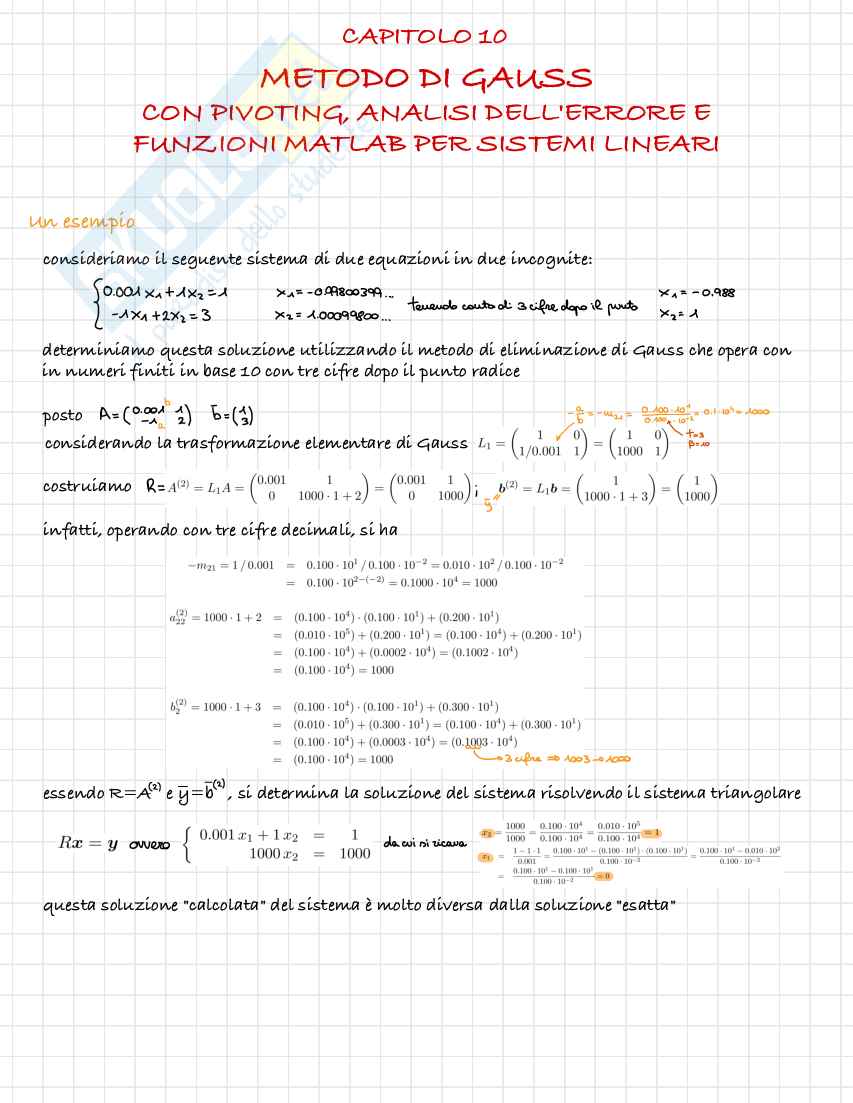 CAPITOLO 10
METODO DI GAUSS
CON PIVOTING, ANALISI DELL'ERRORE E
FUNZIONI MATLAB PER SISTEMI LINEARI
Un esempio
consideriamo il seguente sistema di due equazioni in due incognite:
{ 0.001 x₁ + 1 x₂ = 1    x₁ = -0.99800399...    tenendo conto di 3 cifre dopo il punto    x₁ = -0.988
-1 x₁ + 2 x₂ = 3    x₂ = 1.00099800...    x₂ = 1
determiniamo questa soluzione utilizzando il metodo di eliminazione di Gauss che opera con
in numeri finiti in base 10 con tre cifre dopo il punto radice
posto A = (0.001 1; -1 2)  b̄ = (1; 3)    b    a    -a/b = -m₂₁ = 0.100·10¹/0.100·10⁻² = 0.1·10⁴ = 1000
t=3
β=10
considerando la trasformazione elementare di Gauss L₁ = (1 0; 1/0.001 1) = (1 0; 1000 1)
costruiamo R = A⁽²⁾ = L₁A = (0.001 1; 0 1000·1+2) = (0.001 1; 0 1000); ȳ = b⁽²⁾ = L₁b = (1; 1000·1+3) = (1; 1000)
infatti, operando con tre cifre decimali, si ha
-m₂₁ = 1/0.001 = 0.100·10¹/0.100·10⁻² = 0.010·10²/0.100·10⁻²
= 0.100·10²⁻⁽⁻²⁾ = 0.1000·10⁴ = 1000
a₂₂⁽²⁾ = 1000·1+2 = (0.100·10⁴)·(0.100·10¹)+(0.200·10¹)
= (0.010·10⁵)+(0.200·10¹) = (0.100·10⁴)+(0.200·10¹)
= (0.100·10⁴)+(0.0002·10⁴) = (0.1002·10⁴)
= (0.100·10⁴) = 1000
b₂⁽²⁾ = 1000·1+3 = (0.100·10⁴)·(0.100·10¹)+(0.300·10¹)
= (0.010·10⁵)+(0.300·10¹) = (0.100·10⁴)+(0.300·10¹)
= (0.100·10⁴)+(0.0003·10⁴) = (0.1003·10⁴)
= (0.100·10⁴) = 1000    → 3 cifre ⇒ 1003 → 1000
essendo R=A⁽²⁾ e ȳ=b̄⁽²⁾, si determina la soluzione del sistema risolvendo il sistema triangolare
Rx = y ovvero { 0.001 x₁ + 1 x₂ = 1    da cui si ricava    x₂ = 1000/1000 = 0.100·10⁴/0.100·10⁴ = 0.010·10⁵/0.100·10⁴ = 1
1000 x₂ = 1000    x₁ = (1-1·1)/0.001 = (0.100·10¹-(0.100·10¹)·(0.100·10¹))/0.100·10⁻² = (0.100·10¹-0.010·10²)/0.100·10⁻²
= (0.100·10¹-0.100·10¹)/0.100·10⁻² = 0
questa soluzione "calcolata" del sistema è molto diversa dalla soluzione "esatta"